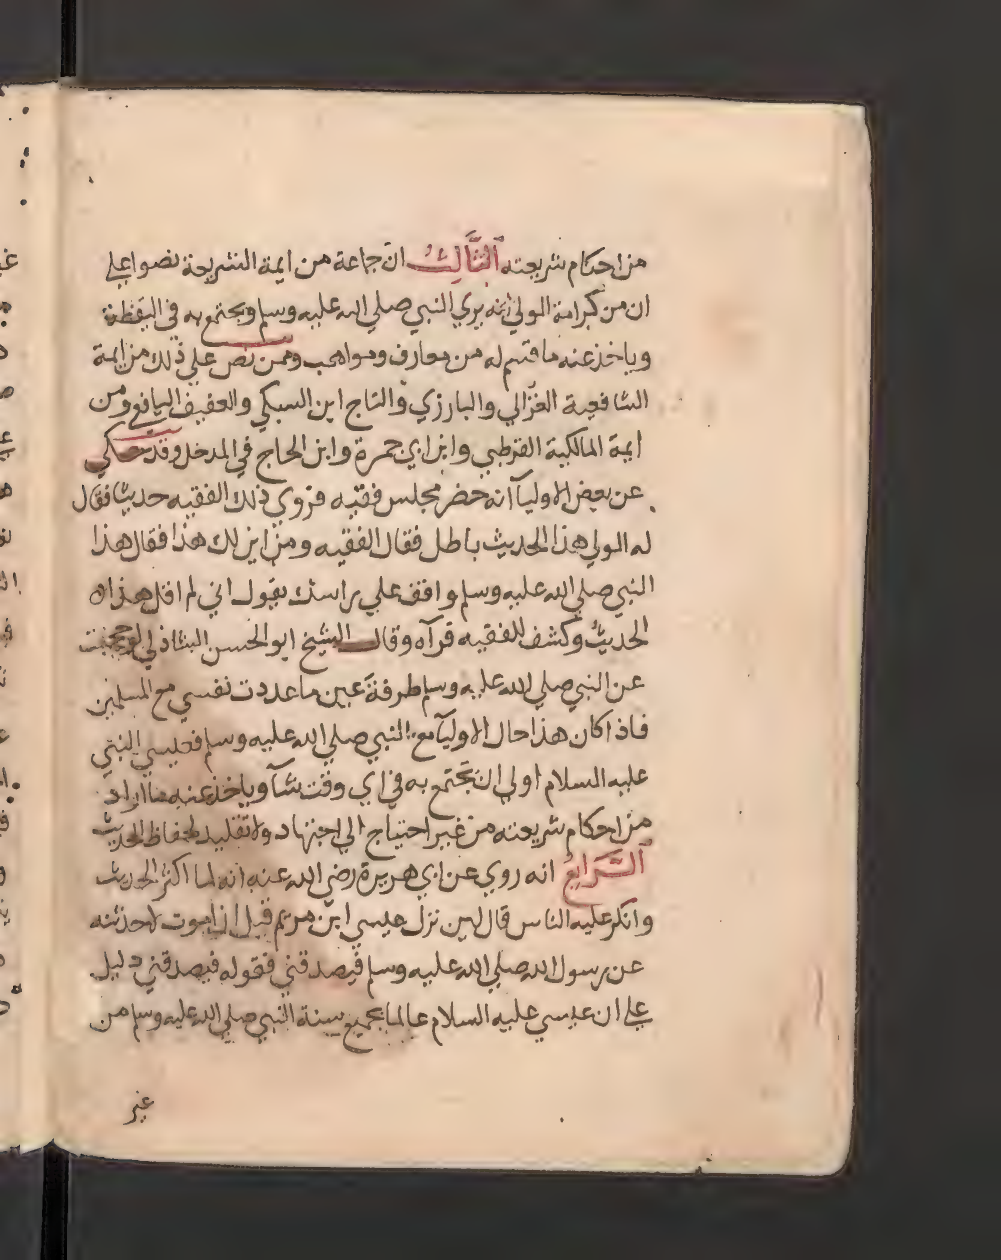 من احكام شريعته الثالث ان جماعة من ايمة الشريعة نصوا علي
ان من كرامة الولي انه يري النبي صلي الله عليه وسلم ويجتمع به في اليقظة
وياخذ عنه ما قسم له من معارف ومواهب وممن نص علي ذلك من ايمة
الشافعية الغزالي والبارزي والتاج ابن السبكي والعفيف اليافعي ومن
ايمة المالكية القرطبي وابن ابي جمرة وابن الحاج في المدخل وقد حكي
عن بعض الاوليآ انه حضر مجلس فقيه فروي ذلك الفقيه حديثا فقال
له الولي هذا الحديث باطل فقال الفقيه ومن اين لك هذا فقال هذا
النبي صلي الله عليه وسلم واقف علي راسك يقول اني لم اقل هذا
الحديث وكشف للفقيه فرآه وقال الشيخ ابو الحسن الشاذلي لو حجبت
عن النبي صلي الله عليه وسلم طرفة عين ما عددت نفسي مع المسلمين
فاذا كان هذا حال الاوليآ مع النبي صلي الله عليه وسلم فعيسي النبي
عليه السلام اولي ان يجتمع به في اي وقت شآ وياخذ عنه ما اراد
من احكام شريعته من غير احتياج الي اجتهاد ولا تقليد لحفاظ الحديث
الرابع انه روي عن ابي هريرة رضي الله عنه انه لما اكثر الحديث
وانكر عليه الناس قال لين نزل عيسي ابن مريم قبل ان اموت لاحدثنه
عن رسول الله صلي الله عليه وسلم فيصدقني فقوله فيصدقني دليل
علي ان عيسي عليه السلام عالما بجميع سنة النبي صلي الله عليه وسلم من
غير